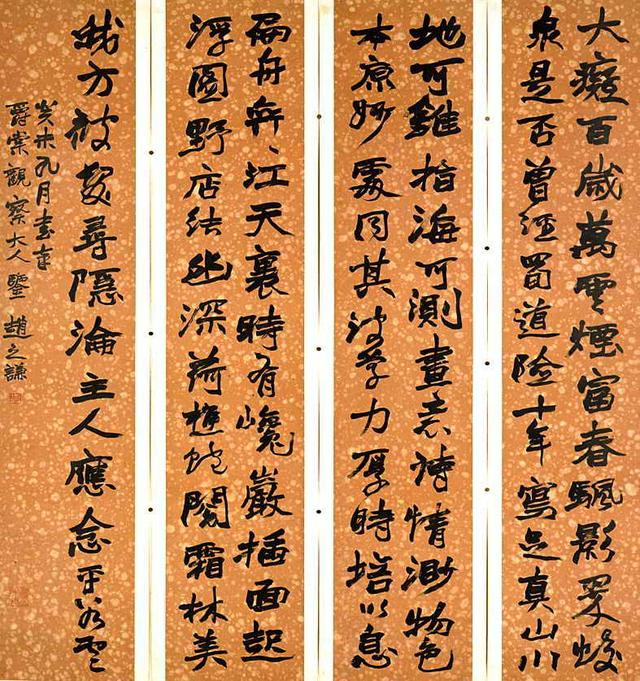 大癡百歲萬雲煙富春颿影罥蛟
泉是否曾經蜀道險十年寫足真山川
地可錐指海可測畫意詩情渺物色
本原妙處同其學力厚時培以息
扁舟奔江天裏時有巉巖插面起
浮圖野店結幽深荷樵閣霜林美
我方被髮尋隱淪主人應念平
癸未九月書奉
爵棠觀察大人鑒 趙之謙